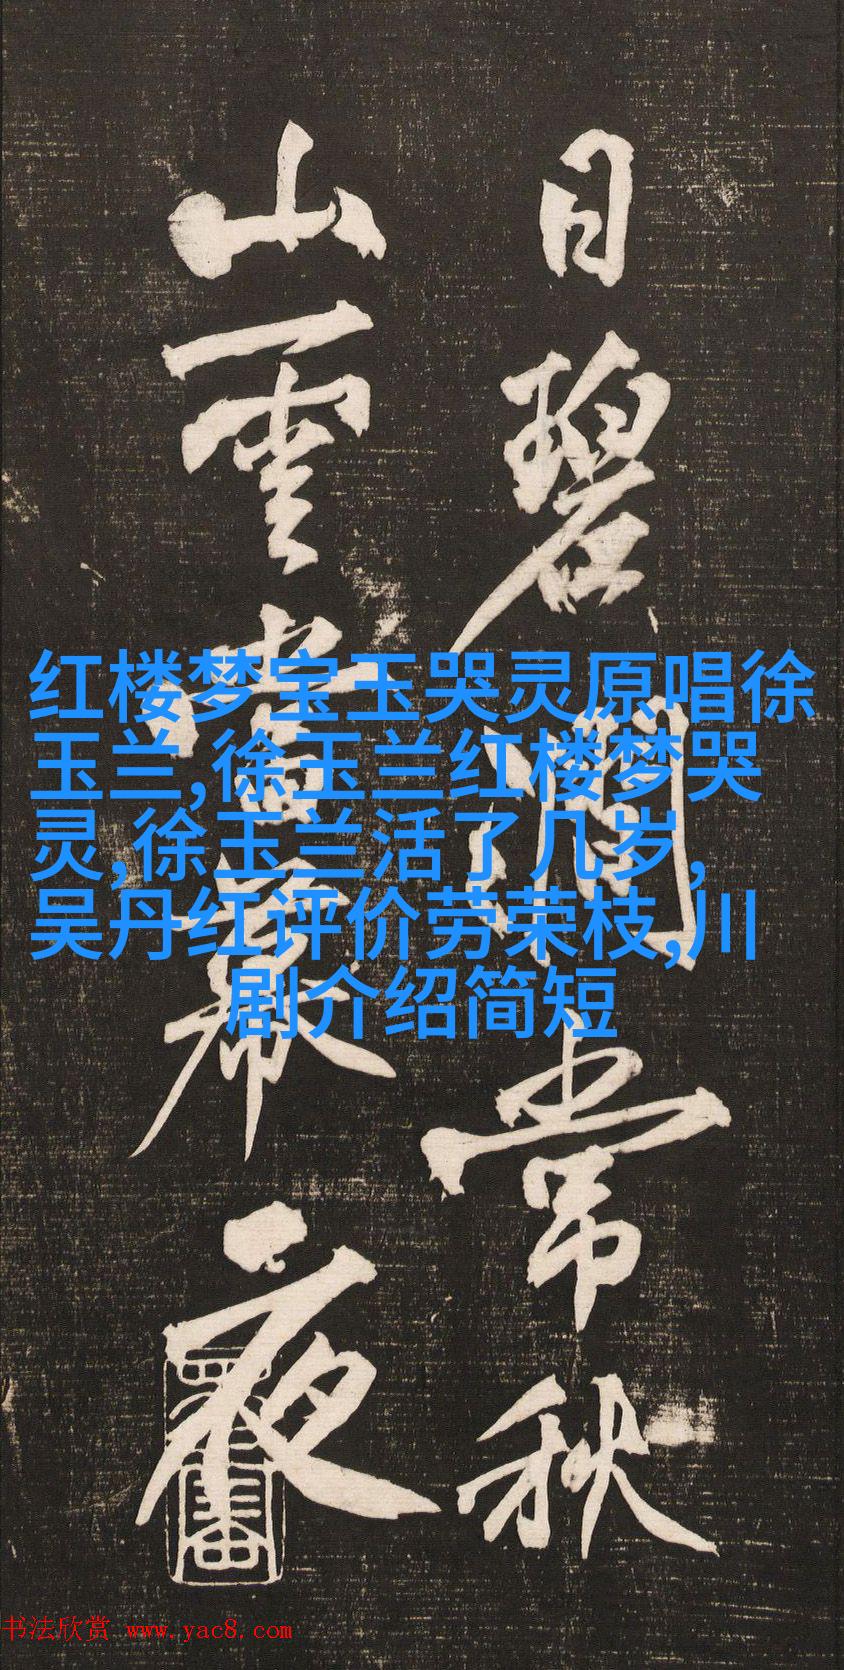 日碧澗常秋
山雲當幕夜
红楼梦宝玉哭灵原唱徐
玉兰,徐玉兰红楼梦哭
灵,徐玉兰活了几岁,
吴丹红评价劳荣枝,川
剧介绍简短
书法欣赏 www.yac8.com